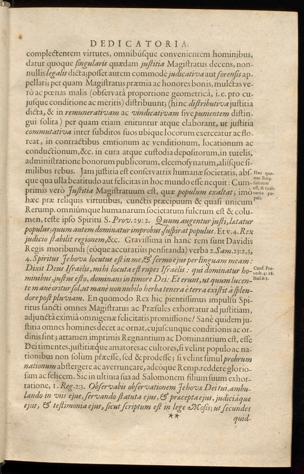 DEDICATORIA.
complectentem virtutes, omnibúsque convenientem hominibus,
datur quoque singularis quædam justitia Magistratus decens, non-
nullis legalis dicta: posset autem commodè judicativa aut forensis ap-
pellari: per quam Magistratus præmia ac honores bonis, mulctas ve-
rò ac pœnas malis (observatâ proportione geometricâ, i.e. pro cu-
jusque conditione ac meritis) distribuunt; (hinc distributiva justitia
dicta, & in remunerativam ac vindicativam sive punientem distin-
gui solita) per quam etiam enituntur atque elaborant, ut justitia
commutativa inter subditos suos ubique locorum exerceatur ac flo-
reat, in contractibus emtionum ac venditionum, locationum ac
conductionum, &c. in cura atque custodia depositorum, in tutelis,
administratione bonorum publicorum, eleemosynatum, aliísque si-
milibus rebus. Jam justitia est conservatrix humanæ societatis, abs-
que qua ulla beatitudo aut felicitas in hoc mundo esse nequit: Cum-
primis verò Justitia Magistratuum est, quæ populum exaltat; imo
hæc præ reliquis virtutibus, cunctis præcipuum & quasi unicum
Rerump. omniúmque humanarum societatum fulcrum est & co-
lumen, teste ipso Spiritu S. Prov. 29: 2. Quum augentur justi, lætatur
populus: quum autem dominatur improbus suspirat populus. Et v. 4. Rex
judicio stabilit regionem, &c. Gravissima in hanc rem sunt Davidis
Regis moribundi (eóque accuratiùs pensiranda) verba 2. Sam. 23: 2, 3,
4. Spiritus Jehovæ locutus est in me, & sermo ejus per linguam meam:
Dixit Deus Israelis, mihi locuta est rupes Israelis: qui dominatur ho-
minibus, justus esto, dominans in timore Dei. Et erunt, ut quum lucen-
te mane oritur sol, ut mane non nubilo herba tenera è terra existit à splen-
dore post pluviam. En quomodo Rex hic pientissimus impulsu Spi-
ritus sancti omnes Magistratus ac Præsules exhortatur ad justitiam,
adjunctâ eximiâ omnigenæ felicitatis promissione! Sanè quidem ju-
stitia omnes homines decet ac ornat, cujuscunque conditionis ac or-
dinis sint; attamen imprimis Regnantium ac Dominantium est, esse
Dei timentes, justitiæque amatores ac cultores, si velint populo ac na-
tionibus non solùm præesse, sed & prodesse; si velint simul probrum
nationum abstergere ac averruncare, adeóque Remp. reddere glorio-
sam ac felicem. Sic in ultima sua ad Salomonem filium suum exhor-
tatione, 1. Reg. 2: 3. Observabis observationem Jehovæ Dei tui, ambu-
lando in viis ejus, servando statuta ejus, & præcepta ejus, judiciáque
ejus, & testimonia ejus, sicut scriptum est in lege Mosis; ut secundes
** quid-